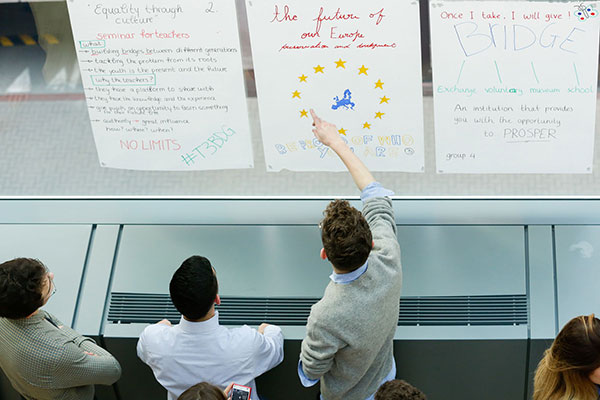 "Equality through culture" 2.
seminar for teachers
WHAT:
- building bridges between different generations
- tackling the problem from its roots
- the youth is the present and the future
Why the teachers?
- they have a platform to speak with
- they have the knowledge and the experience
- give youth an opportunity to learn something
for the future life
- authority → great influence
how? where? when?
NO LIMITS
#T3BSG
the future of
our Europe
preservation and development
BE PROUD OF WHO
YOU ARE
Once I take, I will give!
BRIDGE
Exchange voluntary museum school
An institution that provides
you with the opportunity
to PROSPER
group 4